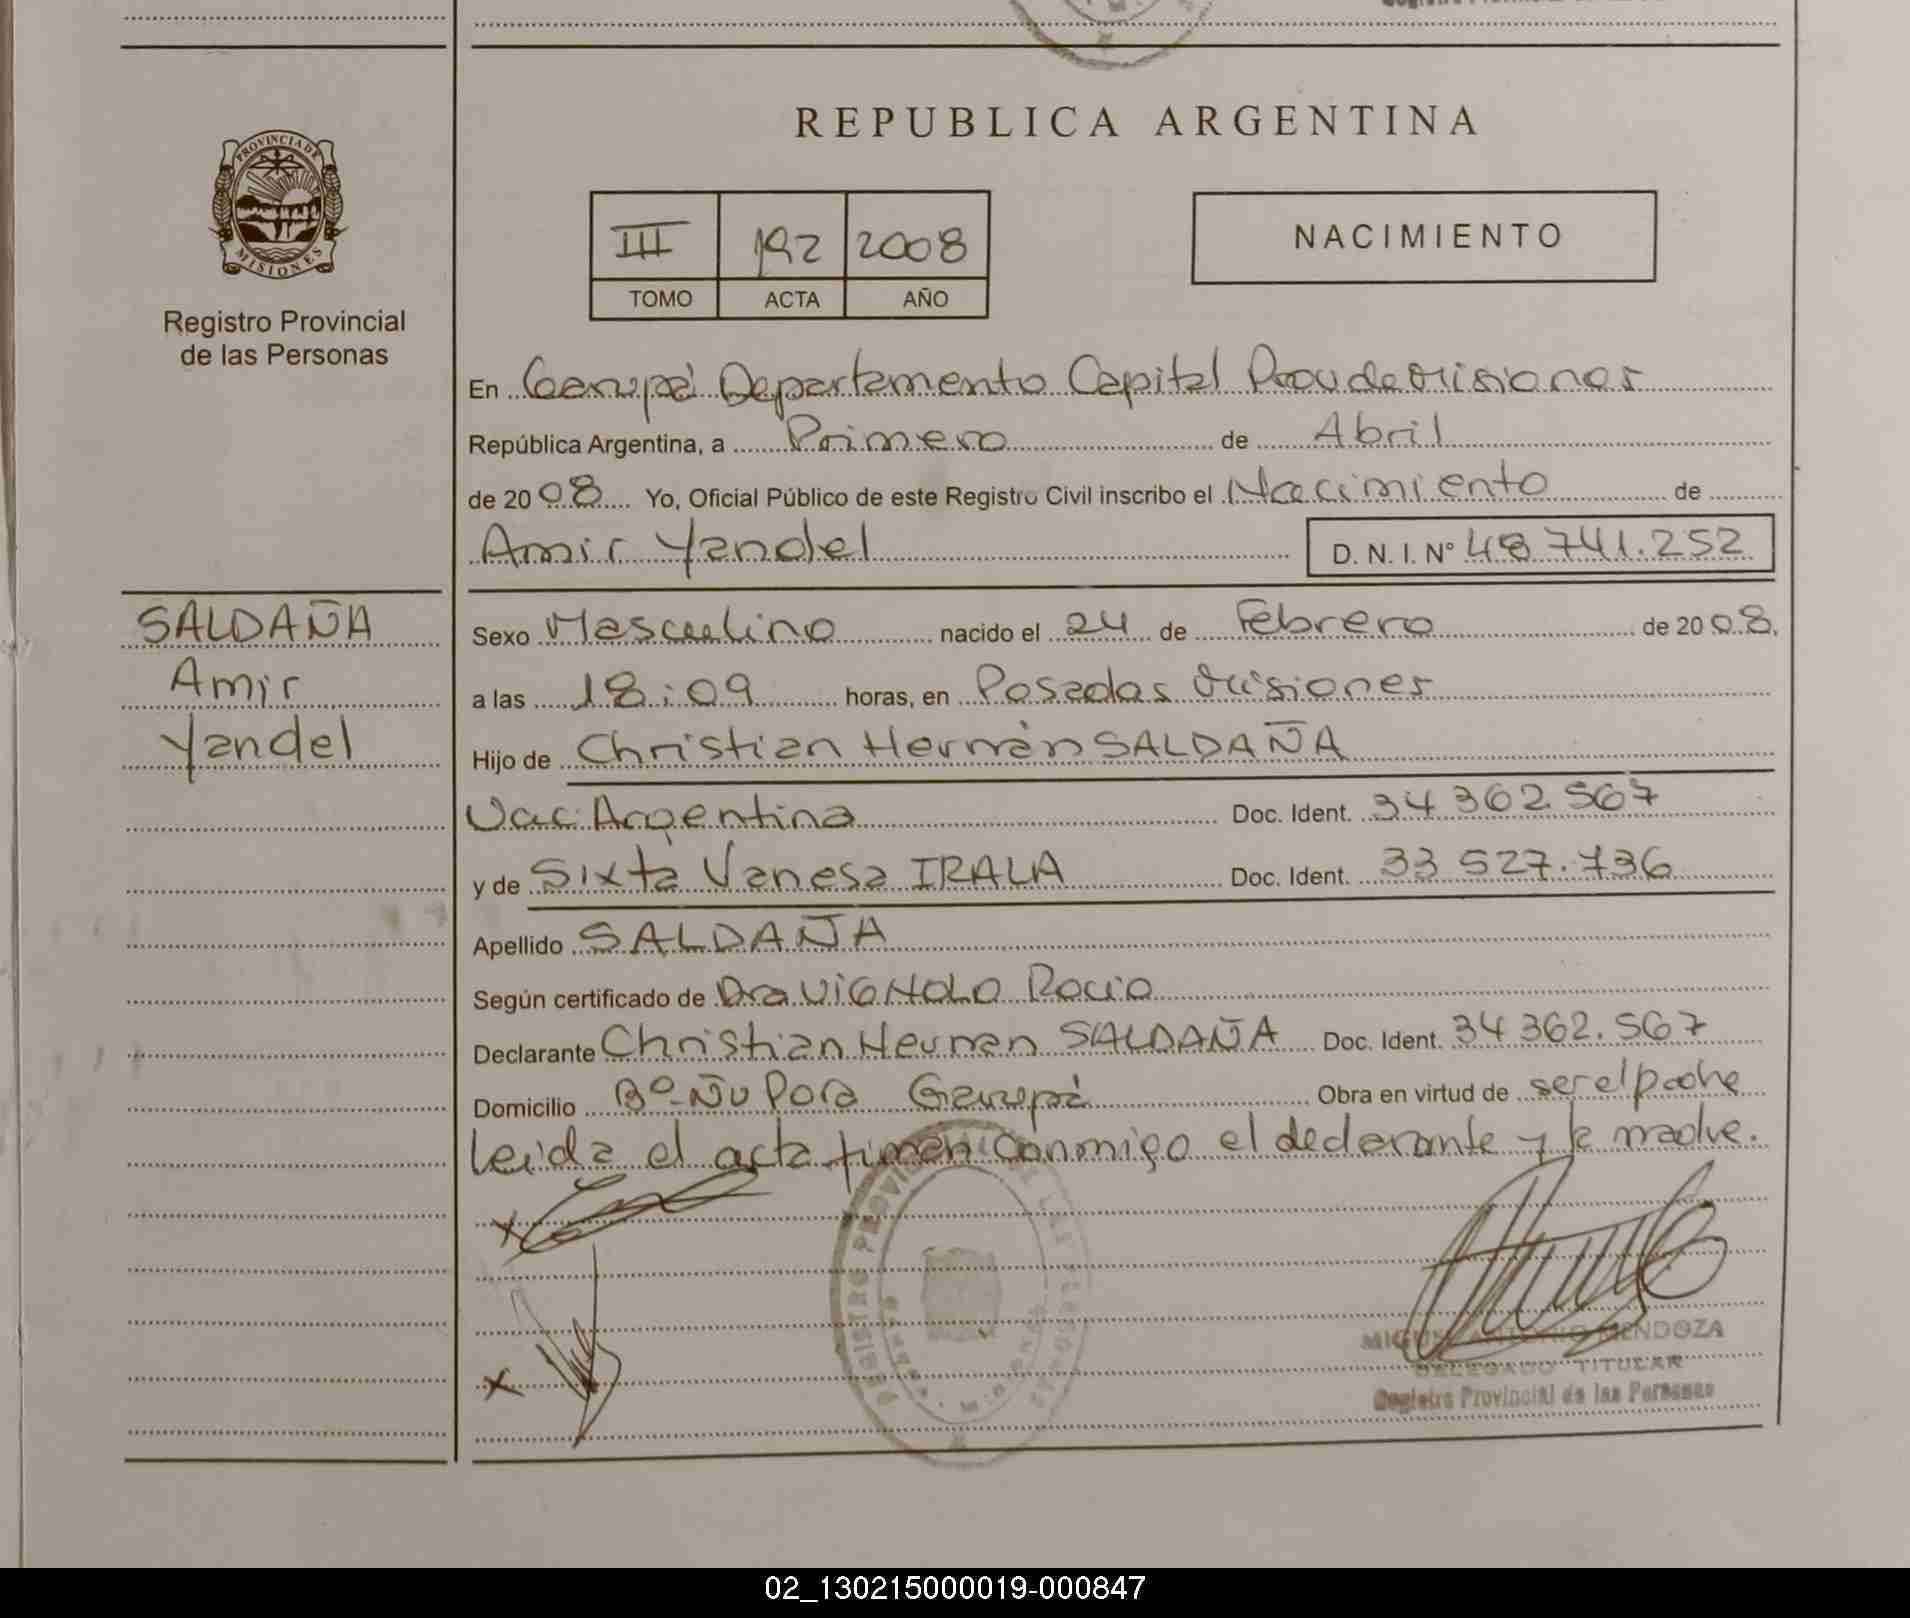 PROVINCIA DE
MISIONES
Registro Provincial
de las Personas
SALDAÑA
Amir
Yandel
REPUBLICA ARGENTINA
III 192 2008
TOMO ACTA AÑO
NACIMIENTO
En Garupá Departamento Capital Prov de Misiones
República Argentina, a Primero de Abril
de 2008 Yo, Oficial Público de este Registro Civil inscribo el Nacimiento de
Amir Yandel D. N. I. Nº 48 741.252
Sexo Masculino nacido el 24 de Febrero de 2008.
a las 18:09 horas, en Posadas Misiones
Hijo de Christian Hernán SALDAÑA
Nac. Argentina Doc. Ident. 34 362 567
y de Sixta Vanesa IRALA Doc. Ident. 33 527.736
Apellido SALDAÑA
Según certificado de Dra VIGNOLO Rocio
Declarante Christian Hernan SALDAÑA Doc. Ident. 34 362.567
Domicilio Bº Ñu Pora Garupá Obra en virtud de ser el padre
Leida el acta firman conmigo el declarante y la madre.
x
x
REGISTRO PROVINCIAL DE LAS PERSONAS
MIGUEL ANTONIO MENDOZA
DELEGADO TITULAR
Registro Provincial de las Personas
02_130215000019-000847